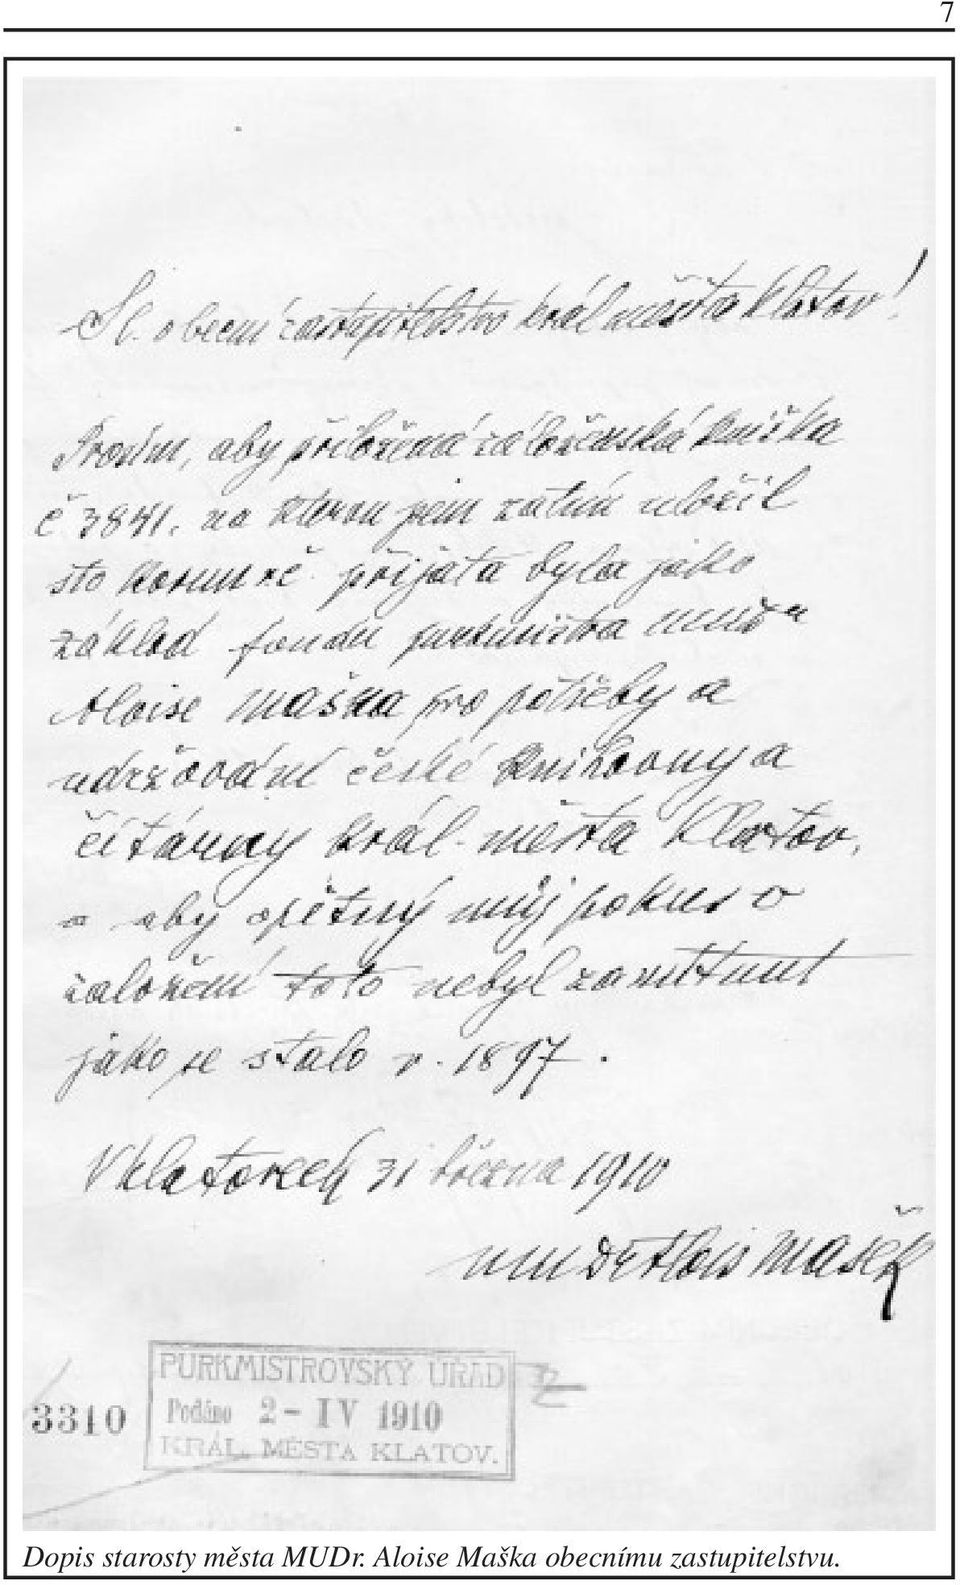 7
Sl. obecní zastupitelstvo král. města Klatov!
Prosím, aby přiložená záloženská knížka
č 3841. na kterou jsem zatím uložil
sto korun rč. přijata byla jako
základ fondu purkmistra MUDra
Aloise Maška pro potřeby a
udržování české knihovny a
čítárny král. města Klatov,
a aby opětný můj pokus o
založení toto nebyl zamítnut
jako se stalo r. 1897.
V Klatovech 31 března 1910
MUDr Alois Mašek
3310
PURKMISTROVSKÝ ÚŘAD
Podáno 2 - IV 1910
KRÁL. MĚSTA KLATOV.
Dopis starosty města MUDr. Aloise Maška obecnímu zastupitelstvu.